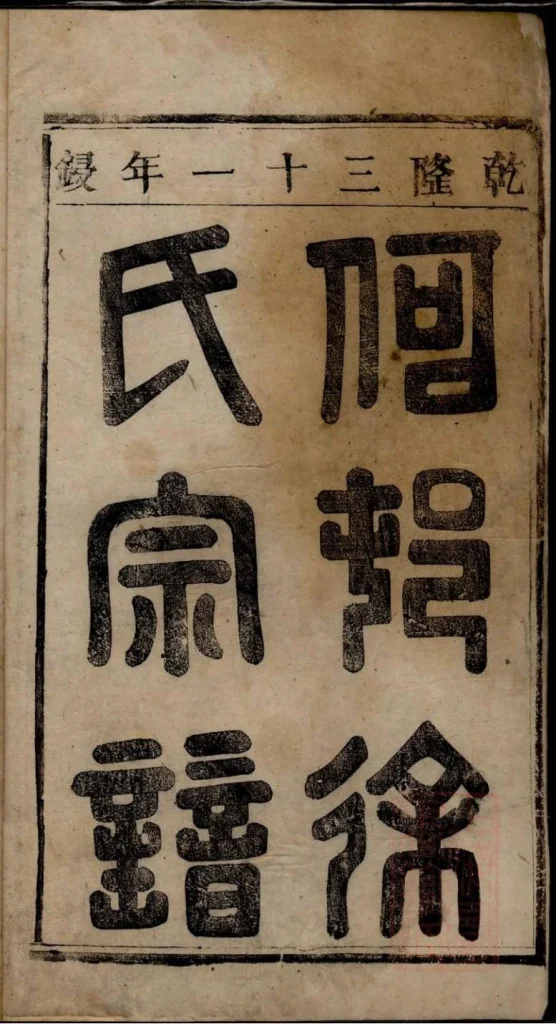 乾隆三十一年鋟
何邨徐
氏宗譜